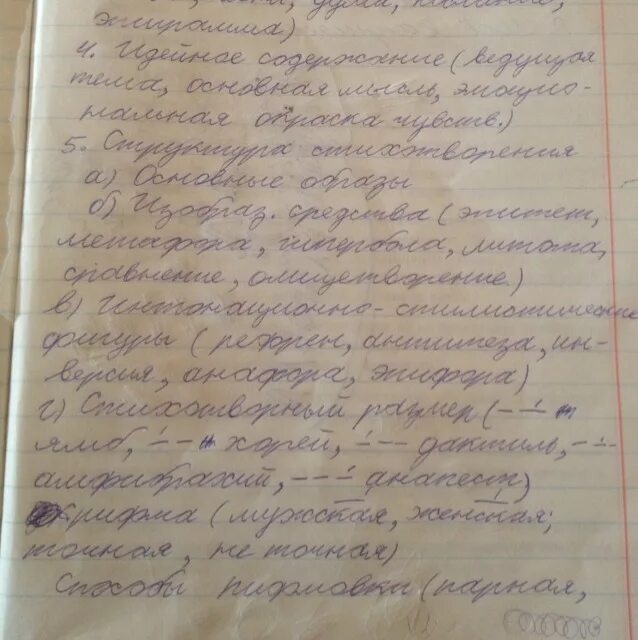 дума,
эпиграмма)
4. Идейное содержание (ведущая
тема, основная мысль, эмацио-
нальная окраска чувств.)
5. Структура стихтворения
а) Основные образы
б) Изобраз. средства (эпитет,
метафора, гипербола, литота,
сравнение, олицетворение.)
в) Интонационно-стилистические
фигуры (рефрен, антитеза, ин-
версия, анафора, эпифора)
г) Стихотворный размер (
ямб, хорей, дактиль,
амфибрахий, анапест)
рифма (мужская, женская;
точная, не точная)
Способы рифмовки (парная,